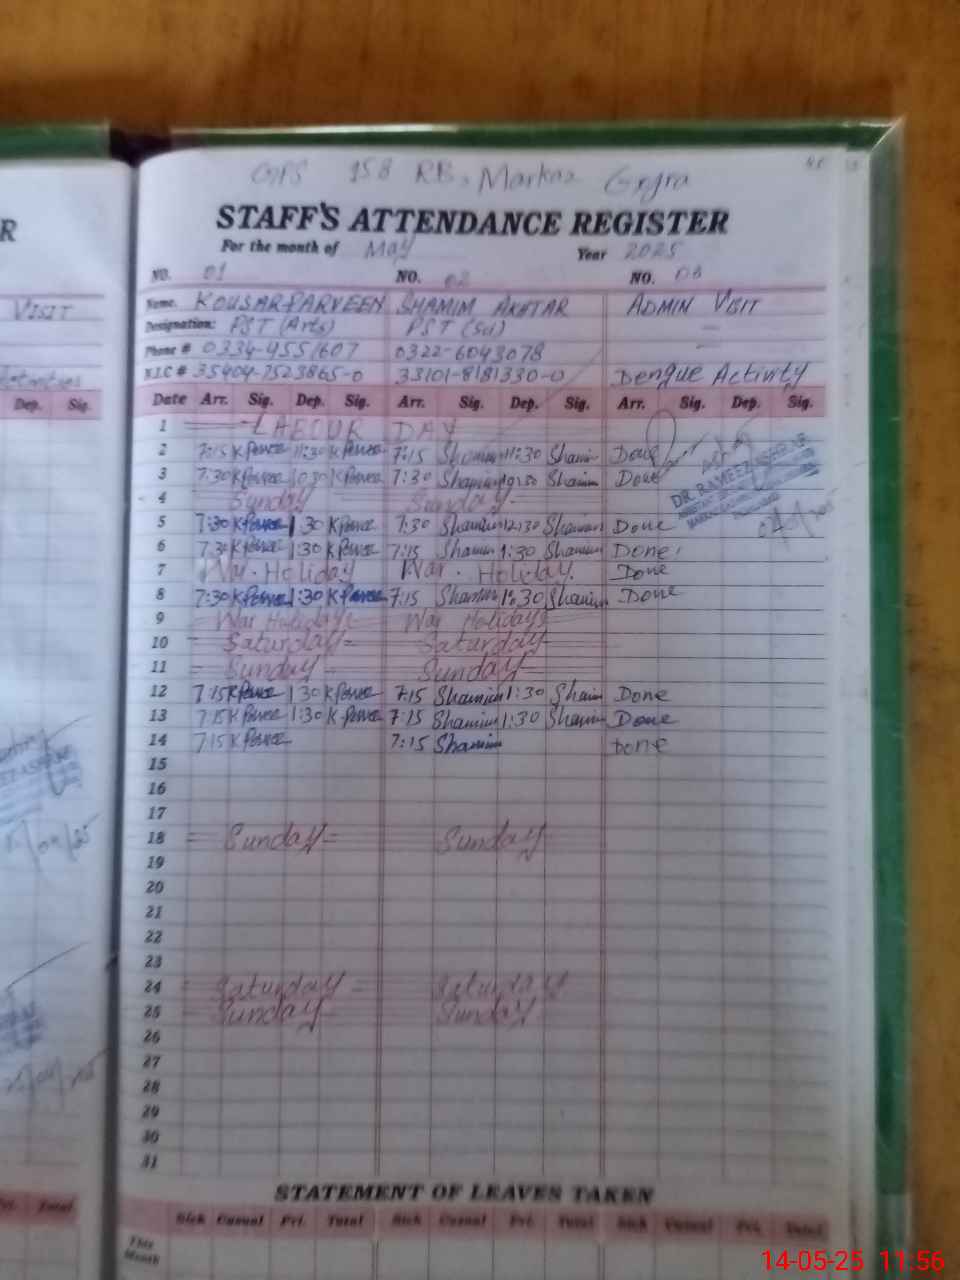 GPS 158 RB, Markaz Gogra
STAFF'S ATTENDANCE REGISTER
For the month of May Year 2025
NO. 01 NO. 02 NO. 03
Name. KOUSAR PARVEEN SHAMIM AKHTAR ADMIN VISIT
Designation: PST (Arts) PST (Sci)
Phone # 0334-4551607 0322-6043078
N.I.C # 35404-7523865-0 33101-8181330-0 Dengue Activity
Date Arr. Sig. Dep. Sig. Arr. Sig. Dep. Sig. Arr. Sig. Dep. Sig.
1 LABOUR DAY
2 7:15 K Parvee 11:30 K Parvee 7:15 Shamim 11:30 Shamim Done
3 7:30 K Parvee 10:30 K Parvee 7:30 Shamim 10:30 Shamim Done
DR. RAMEEZ ASHRAF
4 Sunday Sunday
5 7:30 K Parvee 1:30 K Parvee 7:30 Shamim 12:30 Shamim Done
6 7:30 K Parvee 1:30 K Parvee 7:15 Shamim 1:30 Shamim Done
7 War. Holiday War. Holiday. Done
8 7:30 K Parvee 1:30 K Parvee 7:15 Shamim 1:30 Shamim Done
9 War Holiday War Holiday
10 Saturday Saturday
11 Sunday Sunday
12 7:15 K Parvee 1:30 K Parvee 7:15 Shamim 1:30 Shamim Done
13 7:15 K Parvee 1:30 K Parvee 7:15 Shamim 1:30 Shamim Done
14 7:15 K Parvee 7:15 Shamim Done
15
16
17
18 Sunday Sunday
19
20
21
22
23
24 Saturday Saturday
25 Sunday Sunday
26
27
28
29
30
31
STATEMENT OF LEAVES TAKEN
Sick Casual Pri. Total Sick Casual Pri. Total Sick Casual Pri. Total
This
Month
R
VISIT
Activities
Dep. Sig.
Pri. Total
14-05-25 11:56